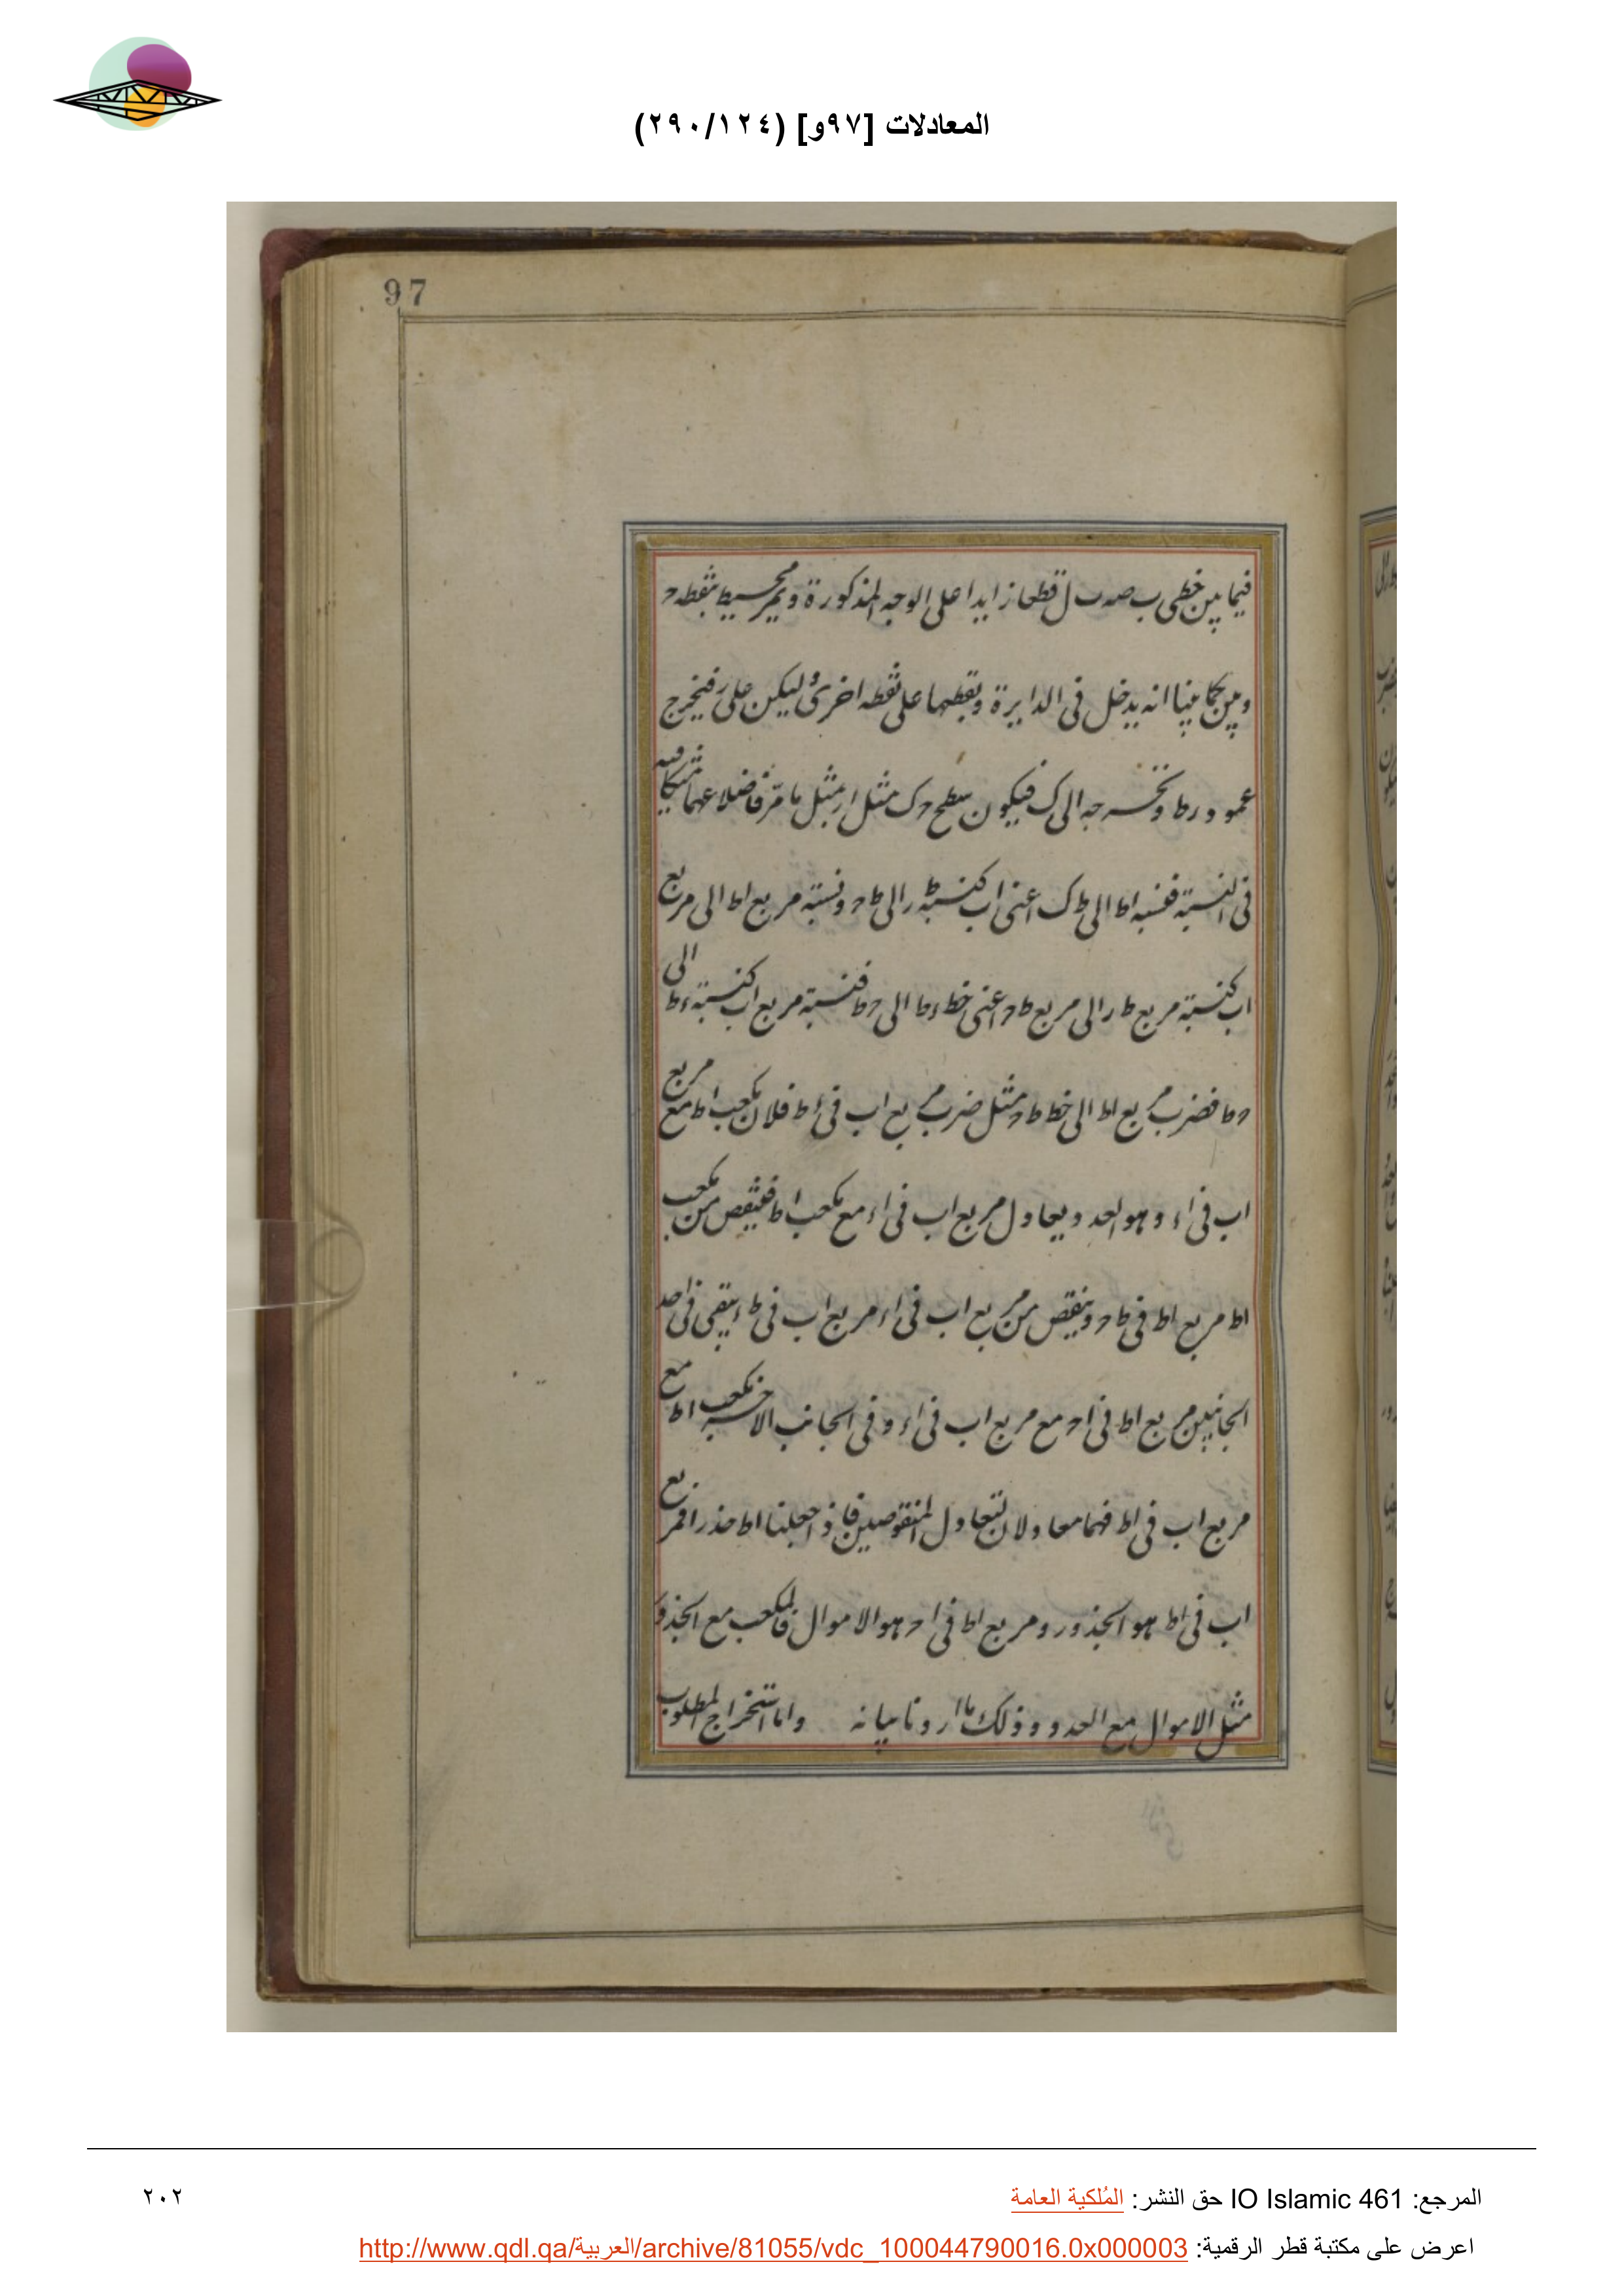 المعادلات [٩٧و] (٢٩٠/١٢٤)
97
فيما بين خطى ب صه ب ل قطعا زايدا على الوجه المذكورة ويمر محيط بنقطه ح
وبين كما بينا انه يدخل فى الدايرة ويقطعها على نقطه اخرى وليكن على ر فيخرج
عمود رط ونخرجه الى ك فيكون سطح ح ك مثل ار بمثل ما مر فاضلاعهما متكافيه
فى النسبة فنسبه اط الى ط ك اعنى اب كنسبة ط ر الى ط ح ونسبة مربع اط الى مربع
اب كنسبة مربع ط ر الى مربع ط ح اعنى خط ءط الى ح ط فنسبة مربع اب كنسبة ءط الى
ح ط فضرب مربع اط الى خط ط ح مثل ضرب مربع اب فى ءط فلان مكعب اط مع مربع
اب فى اء وهو العدد يعادل مربع اب فى اء مع مكعب اط فينقص من مكعب
اط مربع اط فى ط ح وينقص من مربع اب فى اء مربع اب فى ط ء يبقى فى احد
الجانبين مربع اط فى اح مع مربع اب فى اء وفى الجانب الاخر مكعب اط مع
مربع اب فى اط فهما معادلان لتعادل المنقوصين فاذ اجعلنا اط جذرا فمربع
اب فى اط هو الجذور ومربع اط فى اح هو الاموال فالمكعب مع الجذور
مثل الاموال مع العدد وذلك ما اردنا بيانه واما استخراج المطلوب
المرجع: IO Islamic 461 حق النشر: المُلكية العامة
٢٠٢
اعرض على مكتبة قطر الرقمية: http://www.qdl.qa/العربية/archive/81055/vdc_100044790016.0x000003